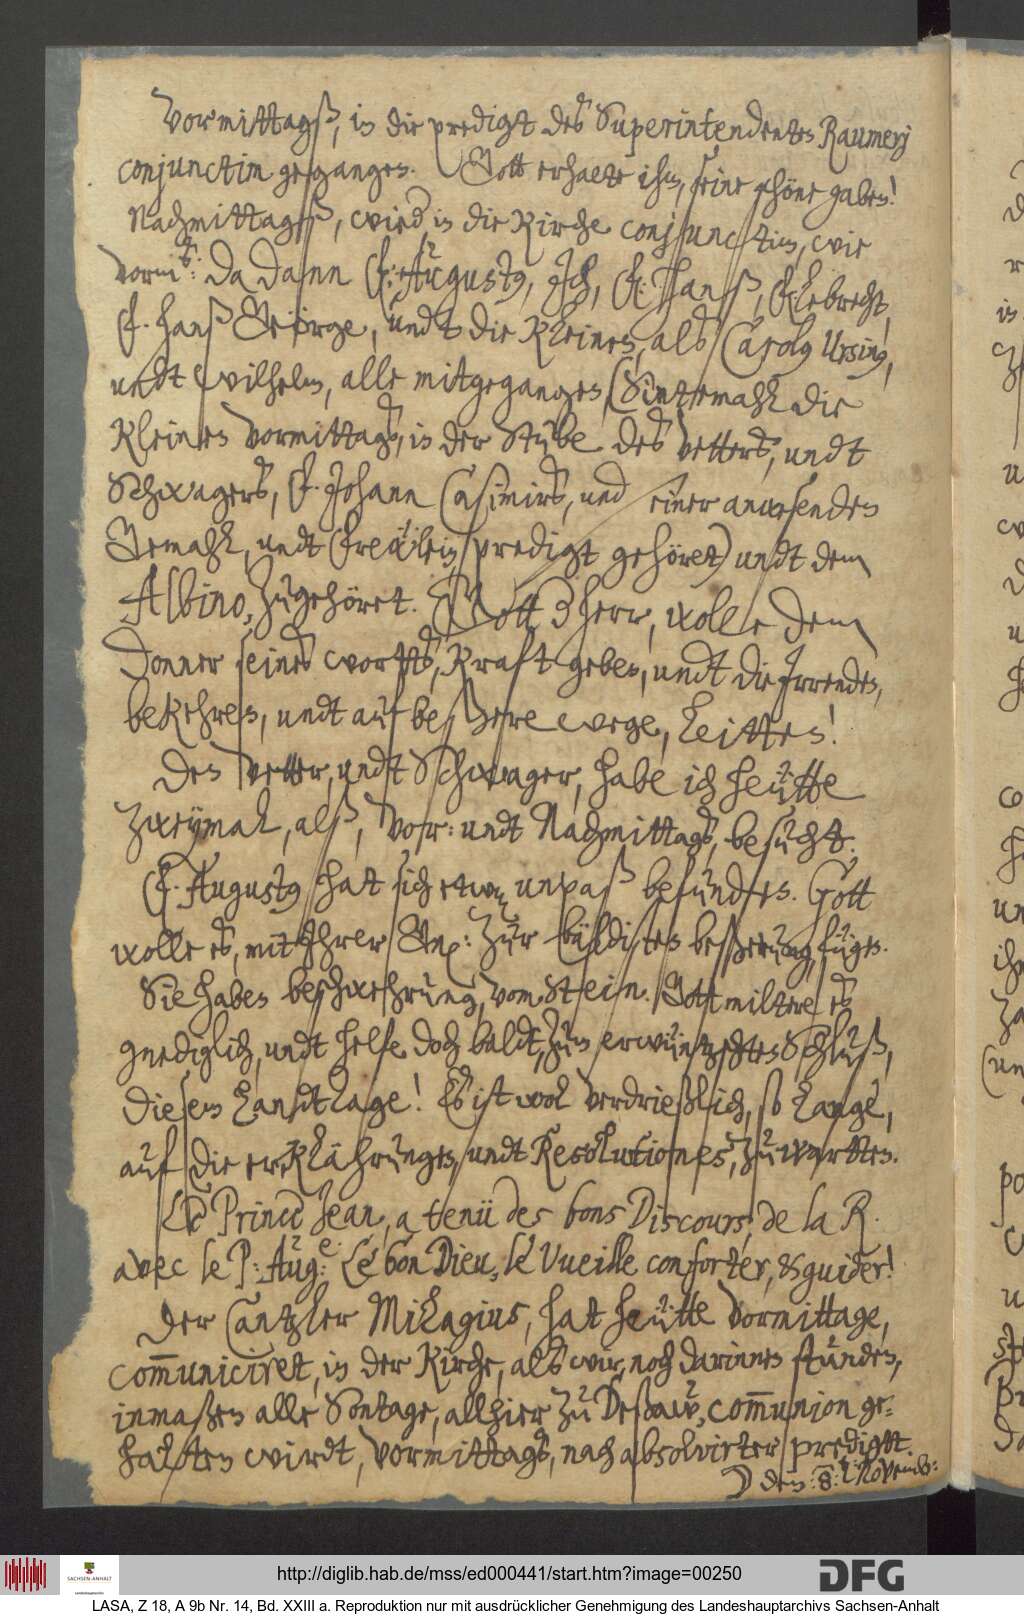 Vormittagß, in die predigt des Superintendenten Raumerj
conjunctim gegangen. Gott erhalte ihm, seine schöne gaben!
Nachmittagß, wieder in die Kirche conjunctim, wie
Vorm: Da dann F. Augustus, Jch, F. Hanß, F. Lebrecht,
F. Hanß George, undt die Kleinen, als Carolus Ursinus,
undt Wilhelm, alle mitgegangen, (Sintemahl die
Kleinen Vormittags, in der Stube des Vetters, undt
Schwagers, F. Johann Casimirs, und seiner anwesenden
Gemahl, undt Freẅlein predigt gehöret) undt dem
Albino, zugehöret. Gott der herr, wolle dem
Donner seines worts, Kraft geben, undt die Jrrenden,
bekehren, undt auf beßere wege, leitten!
Den Vetter, undt Schwager, habe ich heütte
zweymal, alß, Vor: undt Nachmittags, besucht.
F. Augustus hat sich etwas unpaß befunden. Gott
wolle es, mit Jhrer Gnd: zur baldigen beßerung, fügen.
Sie haben beschwehrung, vom Stein. Gott miltere es
gnediglich, undt helfe doch baldt, zum erwüntzschten Schluß,
diesem Landtage! Es ist wol Verdrießlich, so lange,
auf die erklährungen, undt Resolutiones, zu wartten.
Le Prince Jean, a tenü des bons Discours, de la R.
avec le P: Aug:e Le bon Dieu, le Vueille conforter, & guider!
Der Cantzler Milagius, hat heütte Vormittage,
com̅uniciret, in der Kirche, als wir, noch darinnen stunden,
inmaßen alle Sontage, allhier zu Deßaw, com̅union ge-
halten wirdt, Vormittags, nach absolvirter predigtt.
☽ den: 8: Novemb:
http://diglib.hab.de/mss/ed000441/start.htm?image=00250
SACHSEN-ANHALT
DFG
LASA, Z 18, A 9b Nr. 14, Bd. XXIII a. Reproduktion nur mit ausdrücklicher Genehmigung des Landeshauptarchivs Sachsen-Anhalt